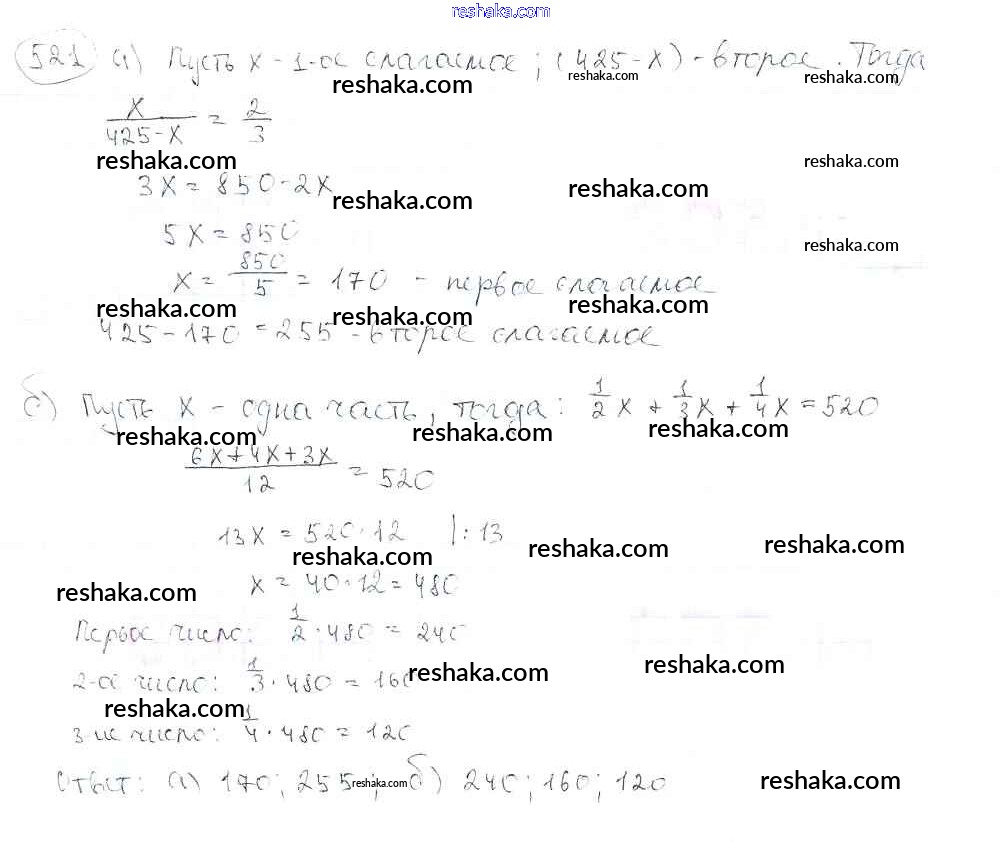 reshaka.com
521 а) Пусть x - 1-ое слагаемое ; (425-x) - второе. Тогда
reshaka.com reshaka.com reshaka.com
x/(425-x) = 2/3
reshaka.com reshaka.com
3x = 850-2x
reshaka.com reshaka.com
5x = 850
reshaka.com
x = 850/5 = 170 - первое слагаемое
reshaka.com reshaka.com reshaka.com
425-170 = 255 - второе слагаемое
б) Пусть x - одна часть, тогда: 1/2 x + 1/3 x + 1/4 x = 520
reshaka.com reshaka.com reshaka.com
(6x+4x+3x)/12 = 520
13x = 520·12 |:13
reshaka.com reshaka.com reshaka.com
x = 40·12 = 480
reshaka.com
Первое число: 1/2 · 480 = 240
reshaka.com reshaka.com
2-ое число: 1/3 · 480 = 160
reshaka.com
3-ие число: 1/4 · 480 = 120
Ответ: а) 170; 255; б) 240; 160; 120
reshaka.com reshaka.com